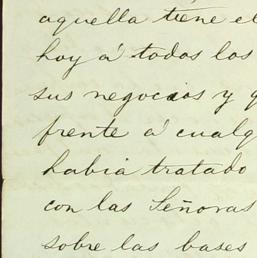 aquella tiene el
hoy á todos los
sus negocios y q
frente á cualq
habia tratado
con las Señoras
sobre las bases